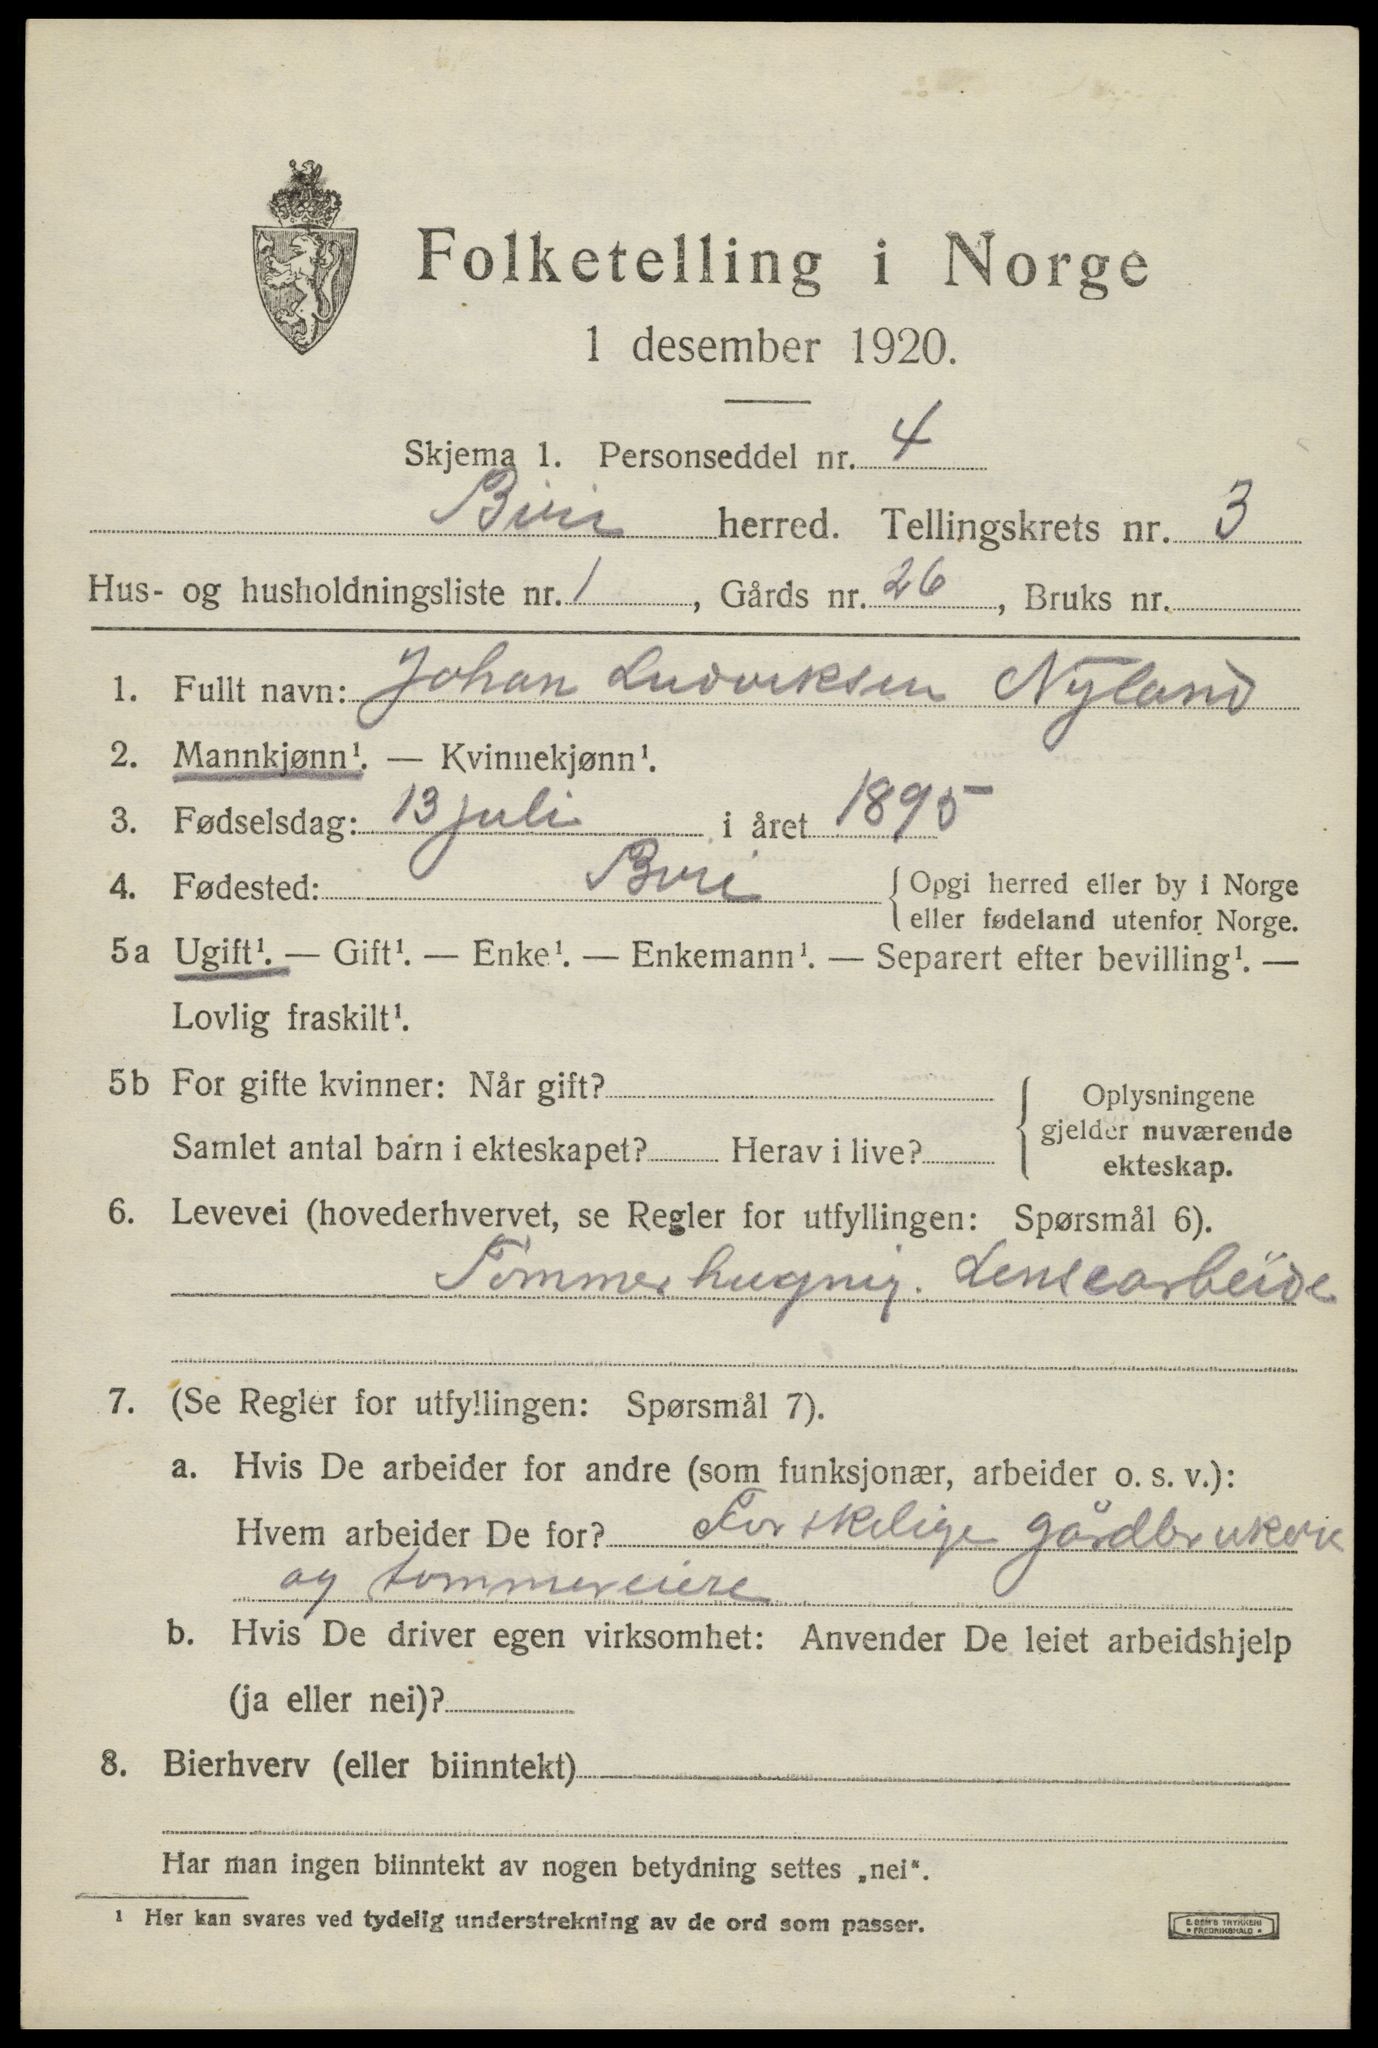 Folketelling i Norge
1 desember 1920.
Skjema 1. Personseddel nr. 4
Biri herred. Tellingskrets nr. 3
Hus- og husholdningsliste nr. 1, Gårds nr. 26, Bruks nr.
1. Fullt navn: Johan Ludviksen Nyland
2. Mannkjønn¹. — Kvinnekjønn¹.
3. Fødselsdag: 13 juli i året 1895
4. Fødested: Biri { Opgi herred eller by i Norge
eller fødeland utenfor Norge.
5a Ugift¹. — Gift¹. — Enke¹. — Enkemann¹. — Separert efter bevilling¹. —
Lovlig fraskilt¹.
5b For gifte kvinner: Når gift?
Samlet antal barn i ekteskapet? Herav i live?
{ Oplysningene
gjelder nuværende
ekteskap.
6. Levevei (hovederhvervet, se Regler for utfyllingen: Spørsmål 6).
Tømmerhugnig. Lensearbeide
7. (Se Regler for utfyllingen: Spørsmål 7).
a. Hvis De arbeider for andre (som funksjonær, arbeider o. s. v.):
Hvem arbeider De for? Forskelige gårdbrukere
og tømmereiere
b. Hvis De driver egen virksomhet: Anvender De leiet arbeidshjelp
(ja eller nei)?
8. Bierhverv (eller biinntekt)
Har man ingen biinntekt av nogen betydning settes „nei".
¹ Her kan svares ved tydelig understrekning av de ord som passer.
E. SEM'S TRYKKERI
• FREDRIKSHALD •